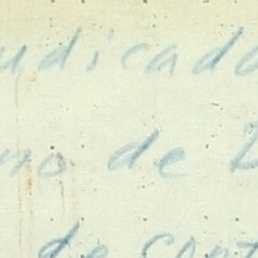 udicado
no de L
de cont